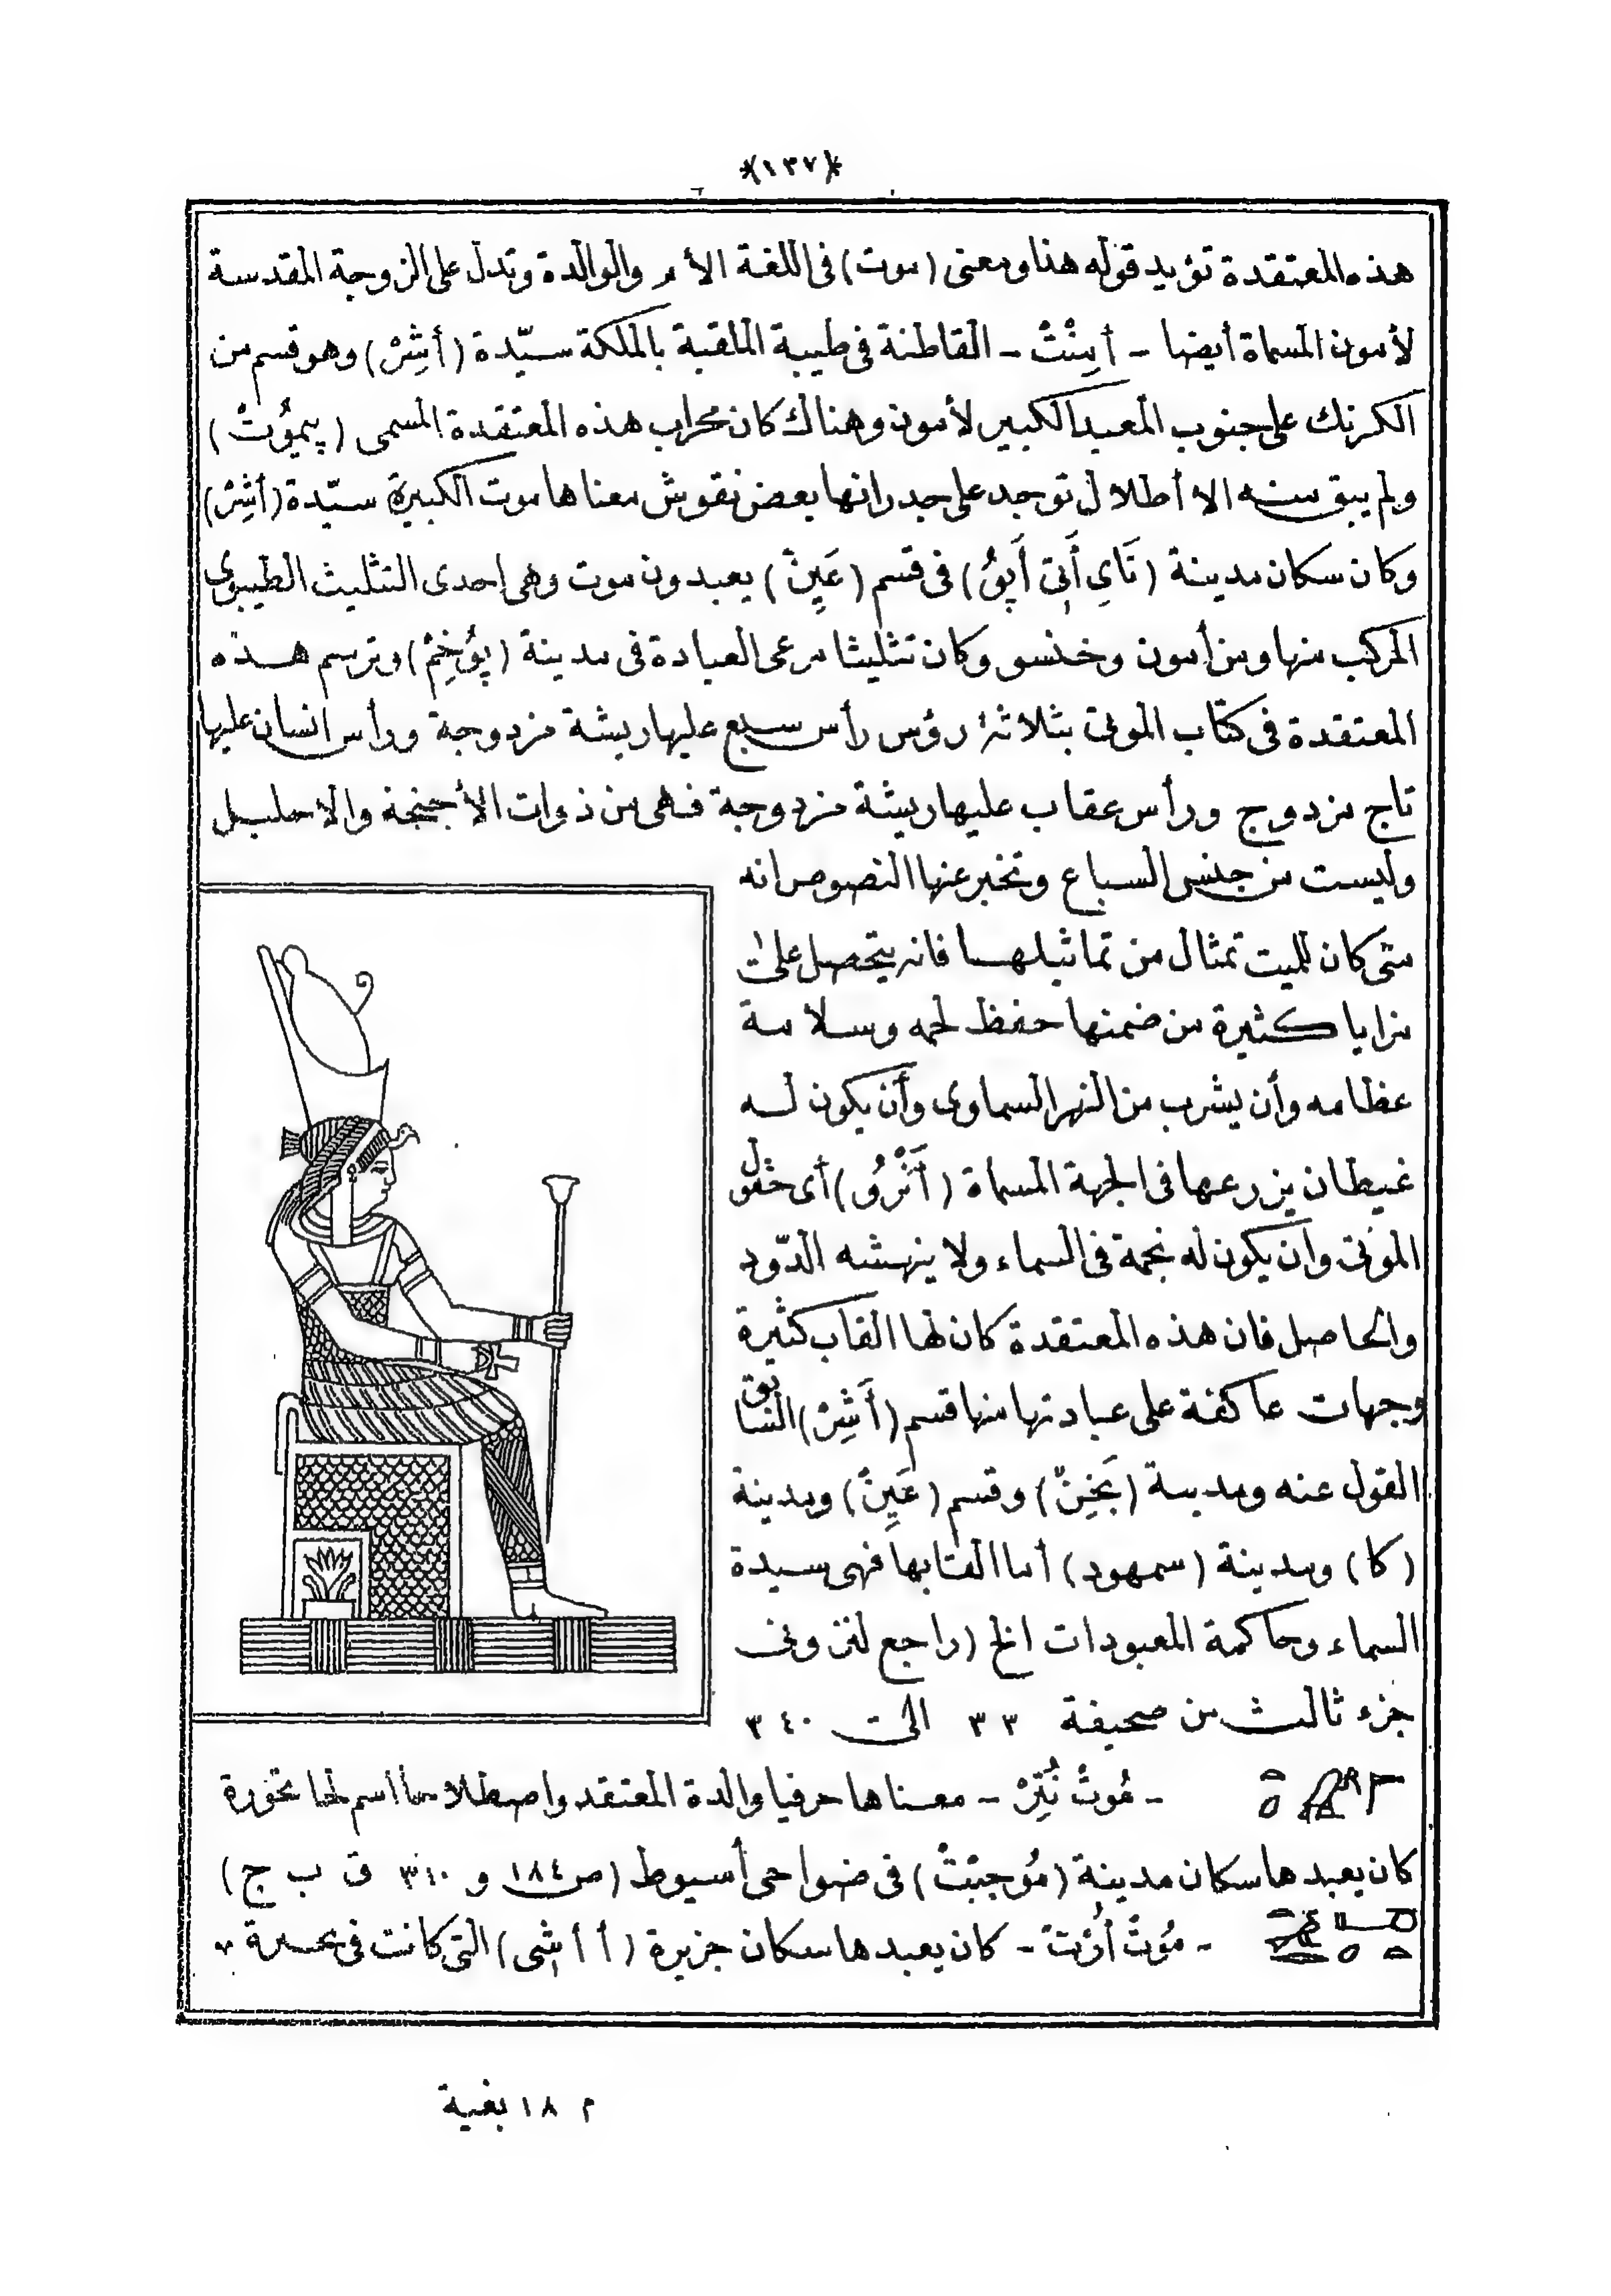 *(١٣٧)*
هذه المعتقدة تؤيد قوله هذا ومعنى (موت) فى اللغة الأم والوالدة وتدل على الزوجة المقدسة
لأمون المسماة أيضا - أمِنْتْ - القاطنة فى طيبة الملقبة بالملكة سيّدة (أشِرْ) وهو قسم من
الكرنك على جنوب المعبد الكبير لأمون وهناك كان محراب هذه المعتقدة المسمى (پيمُوت)
ولم يبق منه الا أطلال توجد على جدرانها بعض نقوش معناها موت الكبيرة سيّدة (أشِرْ)
وكان سكان مدينة فى قسم (عَپِنْ) يعبدون موت وهى احدى التثليث الطيبوى
المركب منها ومن أمون وخنسو وكان تثليثا مرعى العبادة فى مدينة (پُوخِمْ) وترسم هذه
المعتقدة فى كتاب الموتى بثلاثة رؤس رأس سبع عليها ريشة مزدوجة ورأس انسان عليها
تاج مزدوج ورأس عقاب عليها ريشة مزدوجة فهى من ذوات الأجنحة والاحليل
وليست من جنس السباع وتخبر عنها النصوص انه
متى كان للميت تمثال من تماثيلها فانه يتحصل على
مزايا كثيرة من ضمنها حفظ لحمه وسلامة
عظامه وأن يشرب من النهر السماوى وأن يكون له
غيطان يزرعها فى الجهة المسماة (أَنْرُو) أى حقول
الموتى وان يكون له نجمة فى السماء ولا ينهشه الدّود
والحاصل فان هذه المعتقدة كان لها القاب كثيرة
وجهات عاكفة على عبادتها منها قسم (أَشِرْ) السابق
القول عنه ومدينة (بَخِنْ) وقسم (عَپِنْ) ومدينة
(كا) ومدينة (سمهود) أما القابها فهى سيدة
السماء وحاكمة المعبودات الخ (راجع لنزونى
جزء ثالث من صحيفة ٣٣ الى ٣٤٠
- مُوتْ نُتِرْ - معناها حرفيا والدة المعتقد واصطلاحا اسم لحاتحورة
كان يعبدها سكان مدينة فى ضواحى أسيوط (ص ١٨٤ و ٣١٠ ق ب ج)
- مُوتْ أُرْتْ - كان يعبدها سكان جزيرة التى كانت فى بحيرة
م ١٨ بغية